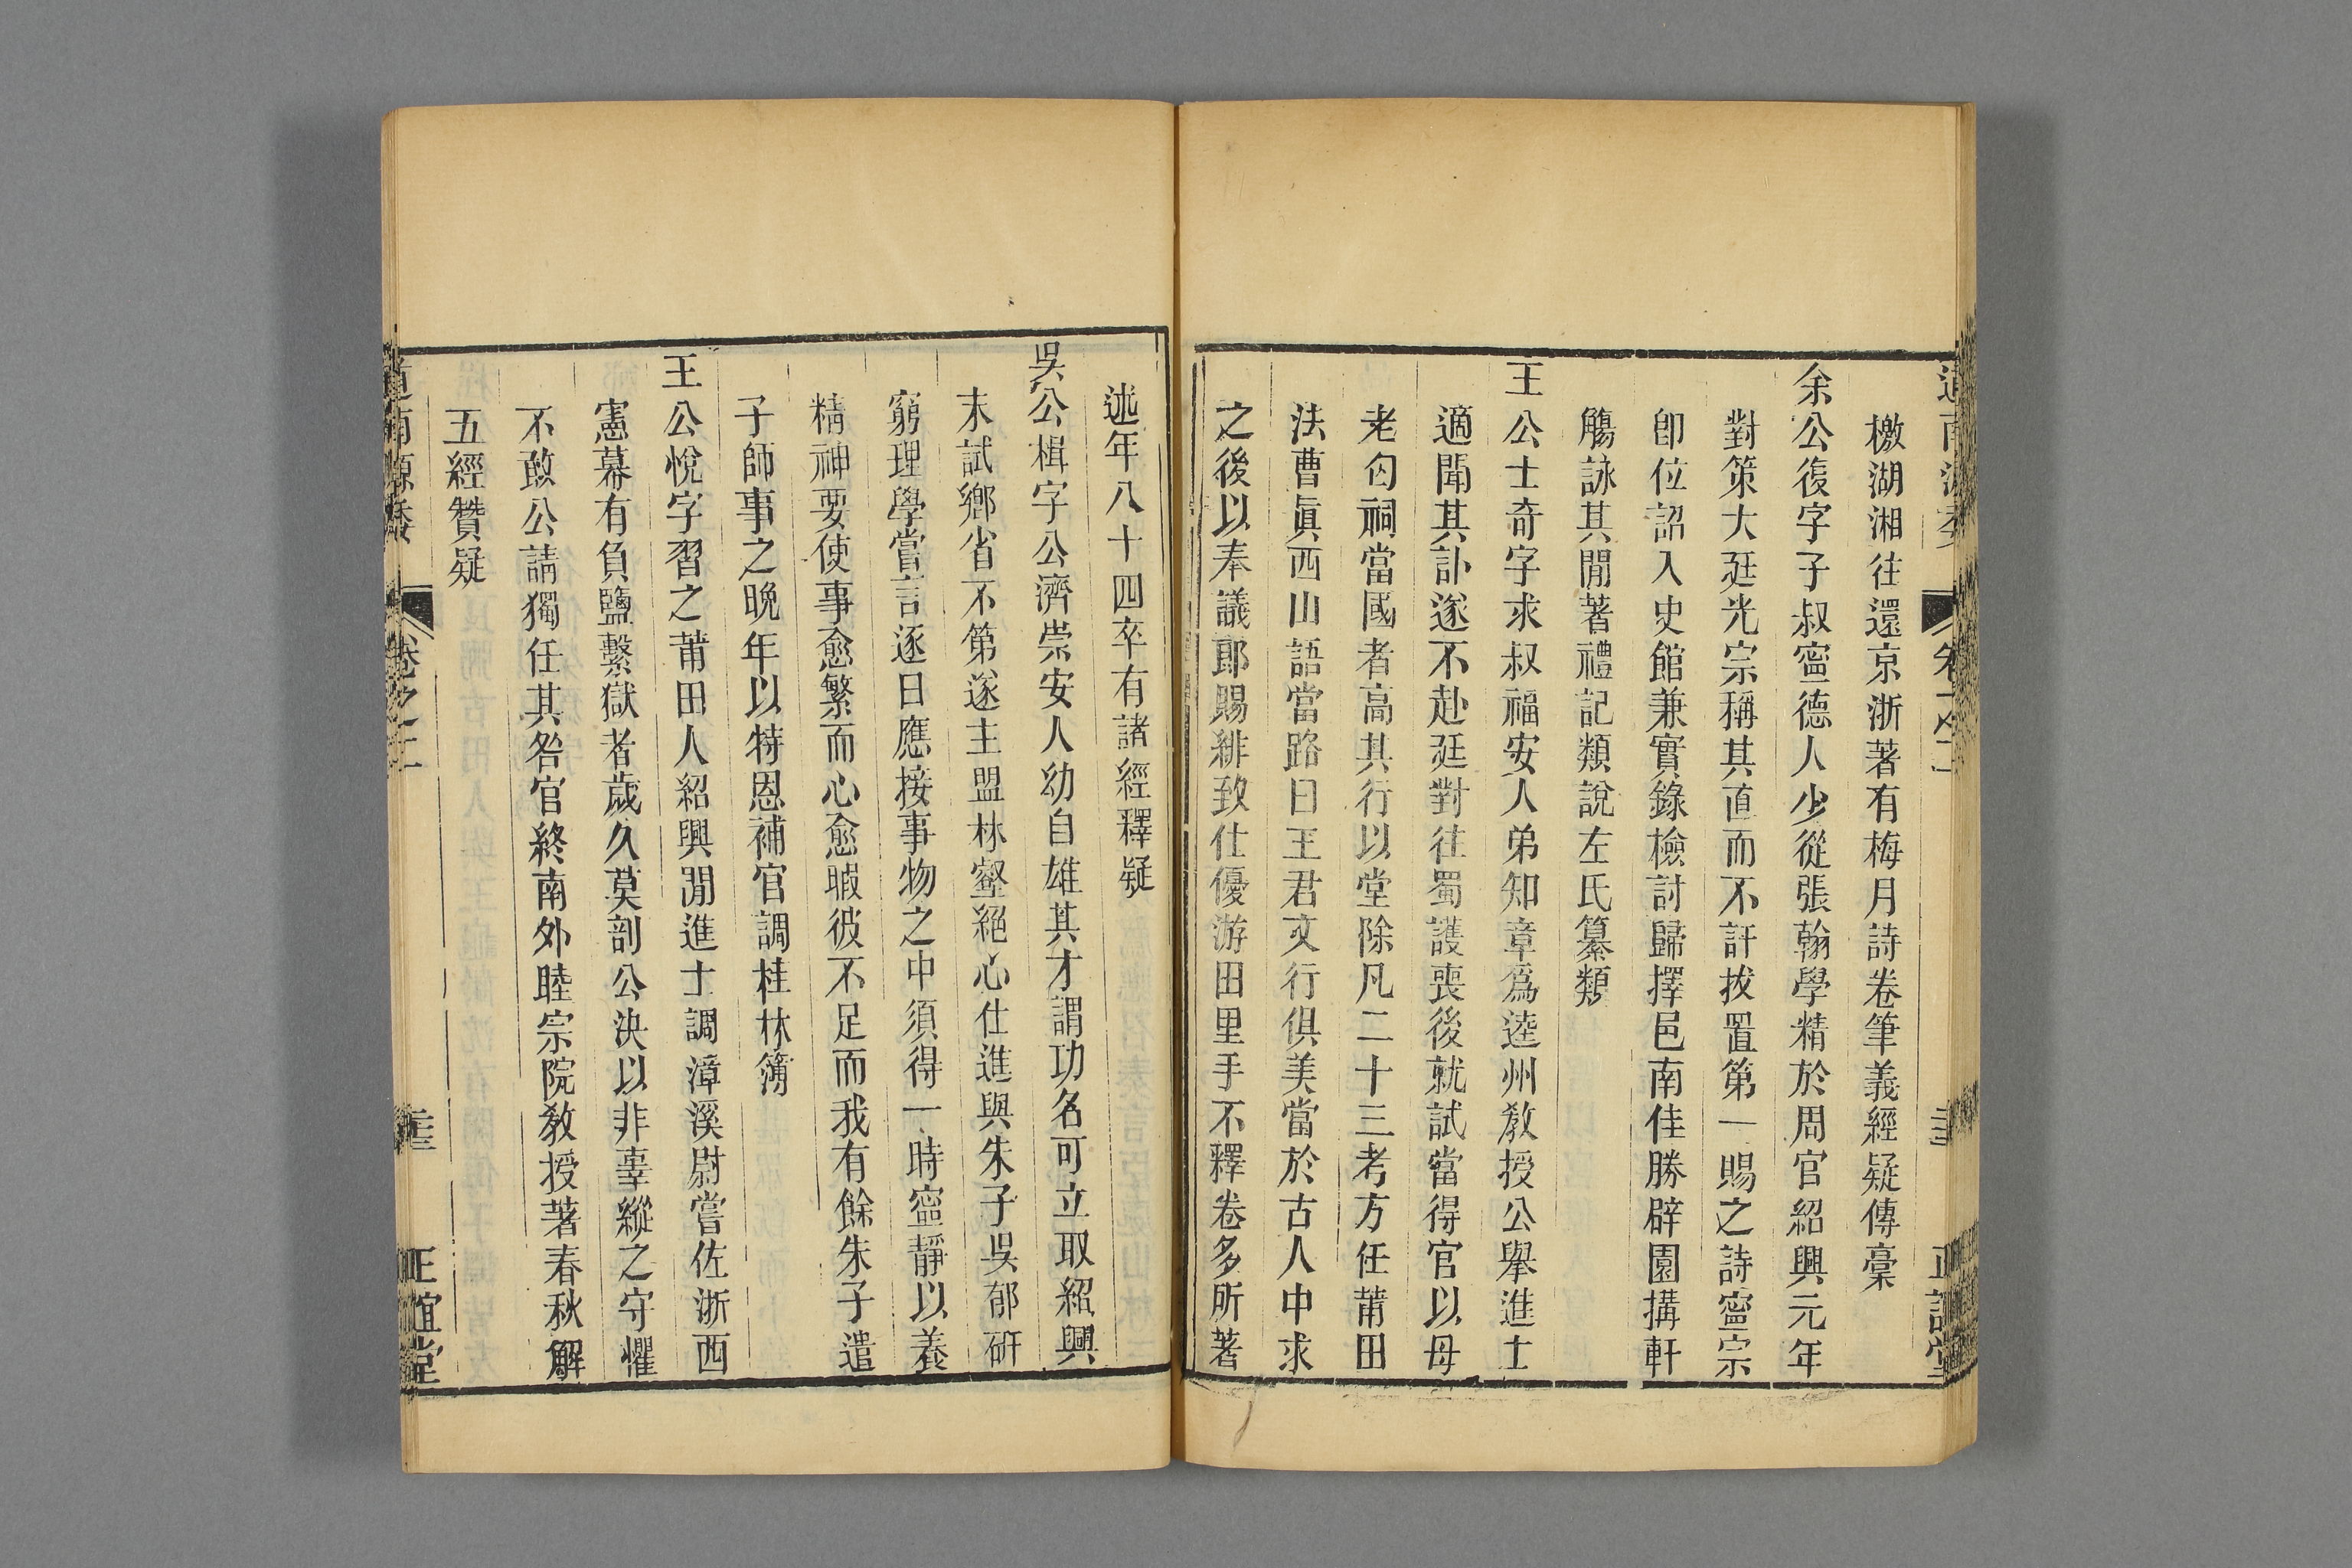 檄湖湘往還京浙著有梅月詩卷筆義經疑傳稾
余公復字子叔寧德人少從張翰學精於周官紹興元年
對策大廷光宗稱其直而不訐拔置第一賜之詩寧宗
卽位詔入史館兼實錄檢討歸擇邑南佳勝辟園搆軒
觴詠其閒著禮記類說左氏纂類
王公士奇字求叔福安人弟知章爲逹州敎授公舉進士
適聞其訃遂不赴廷對往蜀護喪後就試當得官以母
老匄祠當國者高其行以堂除凡二十三考方任莆田
法曹眞西山語當路曰王君文行俱美當於古人中求
之後以奉議郎賜緋致仕優游田里手不釋卷多所著
述年八十四卒有諸經釋疑
吳公楫字公濟崇安人幼自雄其才謂功名可立取紹興
末試鄉省不第遂主盟林壑絕心仕進與朱子吳郁硏
窮理學嘗言逐日應接事物之中須得一時寧靜以養
精神要使事愈繁而心愈暇彼不足而我有餘朱子遣
子師事之晚年以特恩補官調桂林簿
王公悅字習之莆田人紹興閒進士調漳溪尉嘗佐浙西
憲幕有負鹽繫獄者歲久莫剖公決以非辜縱之守懼
不敢公請獨任其咎官終南外睦宗院敎授著春秋解
五經贊疑
卷之二
正誼堂